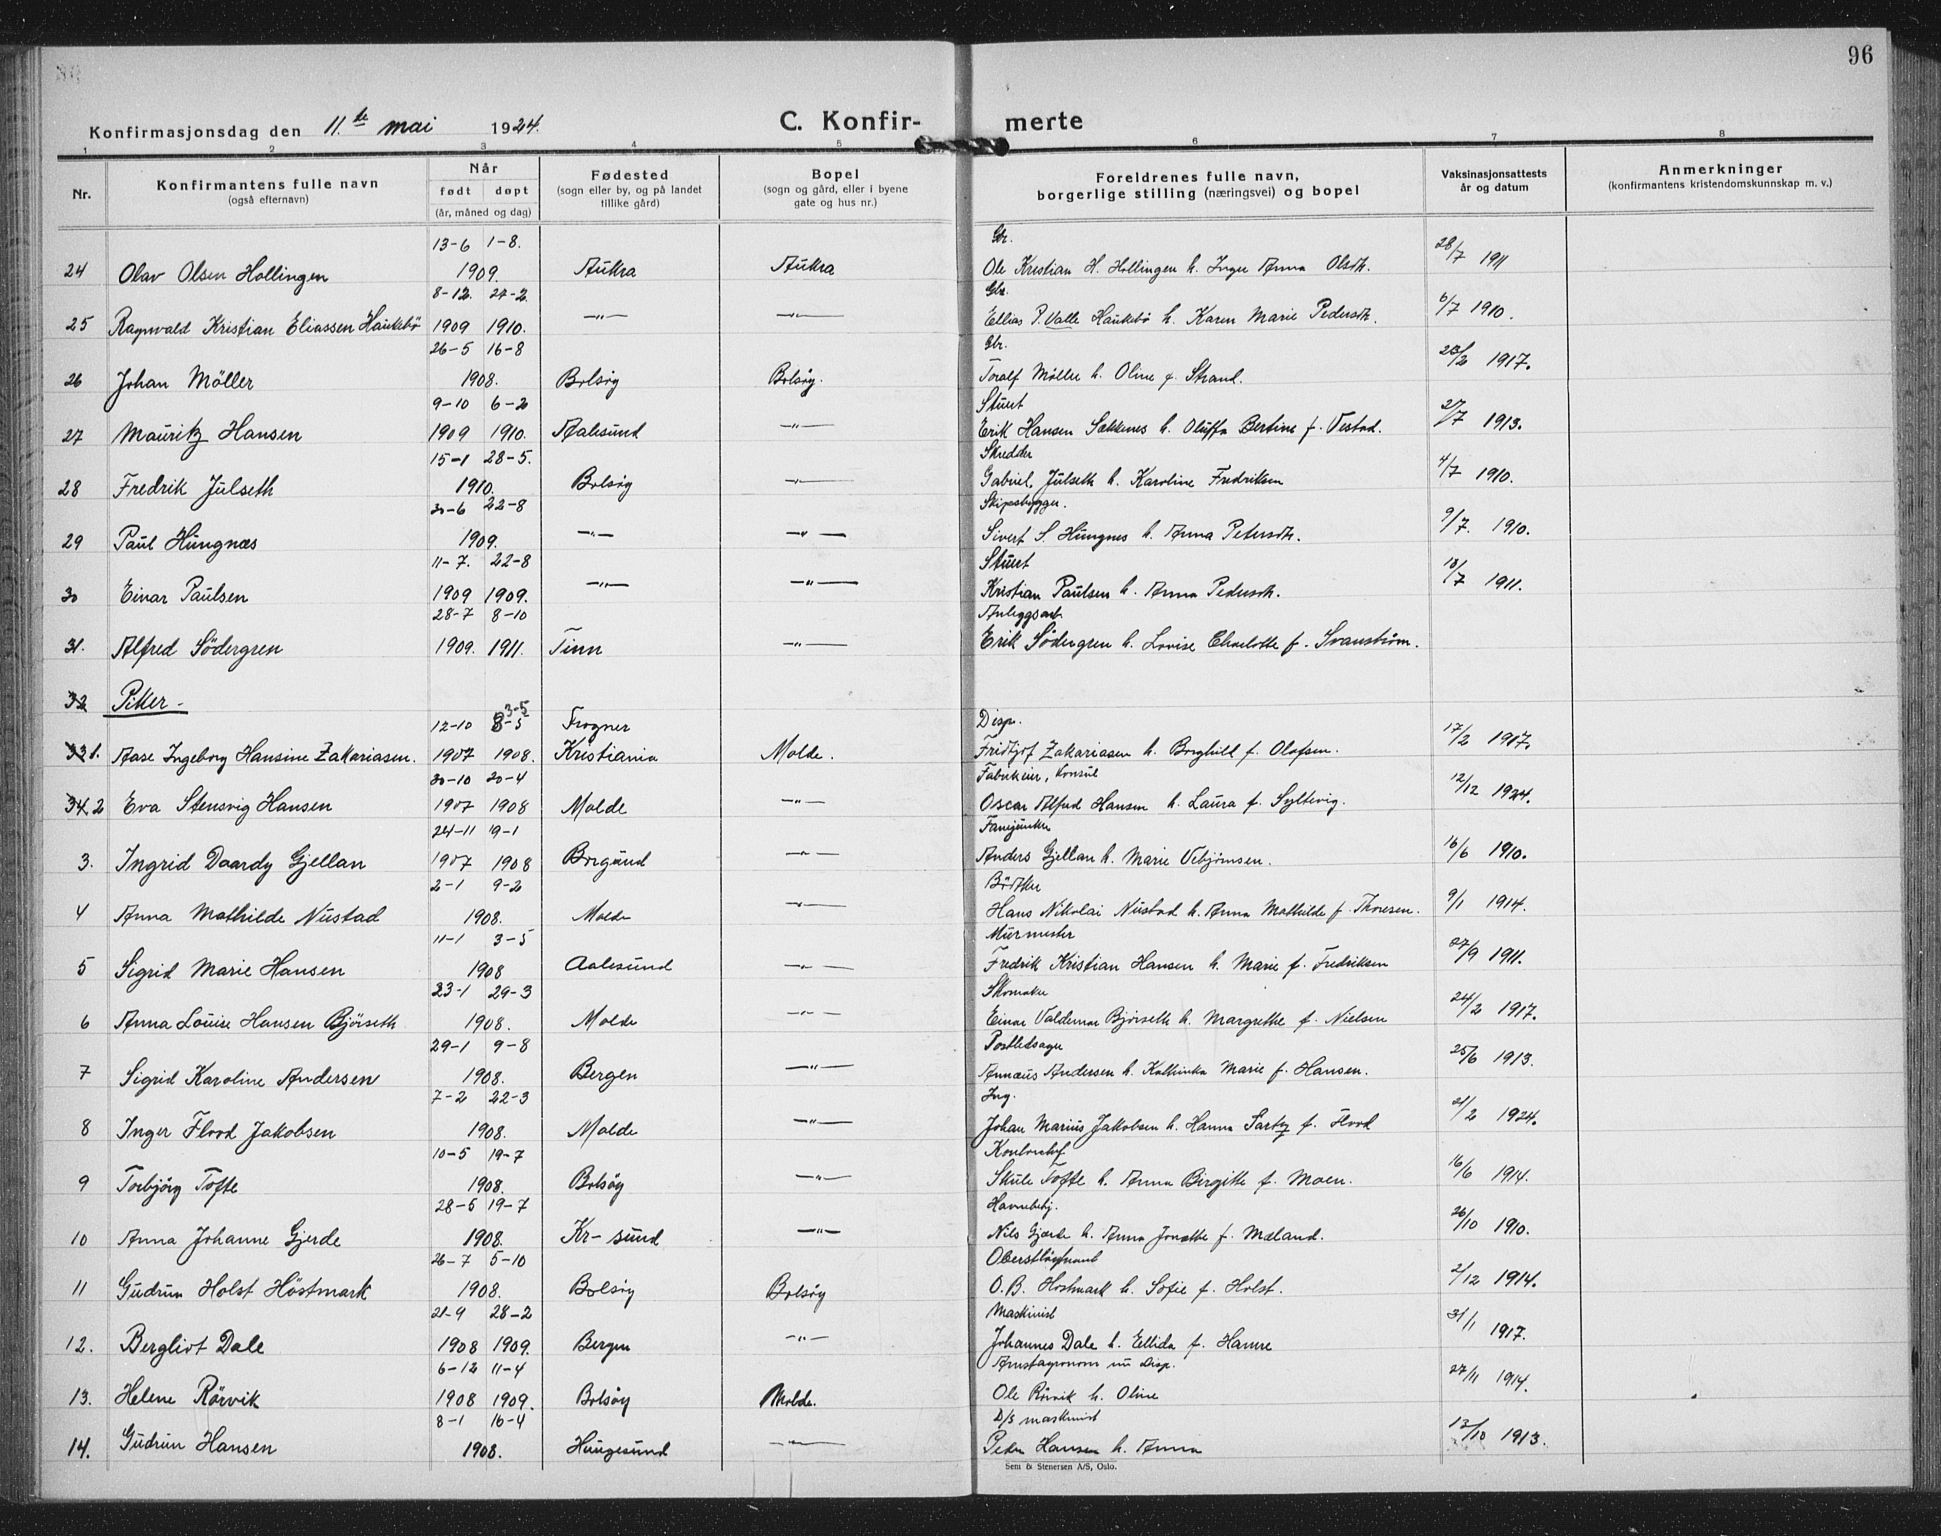 96
Konfirmasjonsdag den 11.te mai 1924.
C. Konfir- merte
1 2 3 4 5 6 7 8
Nr.
Konfirmantens fulle navn
(også efternavn)
Når
født døpt
(år, måned og dag)
Fødested
(sogn eller by, og på landet
tillike gård)
Bopel
(sogn og gård, eller i byene
gate og hus nr.)
Foreldrenes fulle navn,
borgerlige stilling (næringsvei) og bopel
Vaksinasjonsattests
år og datum
Anmerkninger
(konfirmantens kristendomskunnskap m. v.)
13-6 1-8. Gbr.
24 Olav Olsen Hollingen 1909. Aukra Aukra Ole Kristian H. Hollingen h. Inger Anna Olsdtr. 28/7 1911
8-12. 27-2. Gbr.
25 Ragnvald Kristian Eliassen Haukebö 1909 1910. —"— —"— Ellias P. Valle Haukebö h. Karen Marie Pedersdtr. 6/7 1910.
26-5 16-8 Gbr.
26 Johan Möller 1908. Bolsöy Bolsöy. Toralf Möller h. Oline f. Strand. 28/2 1917.
9-10 6-2 Stuert
27 Mauritz Hansen 1909 1910. Aalesund —"— Erik Hansen Sækkenes h. Oluffa Bertine f. Vestad. 27/7 1913.
15-1 28-5. Skredder
28 Fredrik Julseth 1910. Bolsöy —"— Gabriel Julseth h. Karoline Fredriksen 4/7 1910.
30-6 22-8 Skipsbygger.
29 Paul Hungnæs 1909. —"— —"— Sivert S. Hungnes h. Anna Petersdtr. 9/7. 1910.
11-7. 22-8 Stuert
30 Einar Paulsen 1909 1909. —"— —"— Kristian Paulsen h. Anna Pedersdtr. 18/7 1911.
28-7 8-10 Anleggsarb.
31. Alfred Södergren 1909. 1911. Tinn —"— Erik Södergren h. Lovise Charlotte f. Svanström.
32 Piker -
12-10 8-5 3-5 Frogner Disp.
33 1. Aase Ingeborg Hansine Zakariasen. 1907 1908. Kristiania Molde. Fridtjof Zakariasen h. Borghild f. Olafsen. 17/2 1917.
30-10 20-4 Fabrikeier, konsul
34. 2 Eva Stensvig Hansen 1907 1908 Molde —"— Oscar Alfred Hansen h. Laura f. Syltevig. 12/12 1924.
24-11 19-1 Fanejunker
3. Ingrid Daardy Gjellan 1907 1908 Borgund —"— Anders Gjellan h. Marie Vebjörnsen. 16/6 1910.
2-1 9-2 Bödker
4 Anna Mathilde Nustad 1908. Molde —"— Hans Nikolai Nustad h. Anna Mathilde f. Thoresen. 9/1 1914.
11-1 3-5 Murmester
5 Sigrid Marie Hansen 1908 Aalesund —"— Fredrik Kristian Hansen h. Marie f. Fredriksen 27/9 1911.
23-1 29-3 Skomaker
6 Anna Louise Hansen Björseth 1908. Molde —"— Einar Valdemar Björseth h. Margrethe f. Nielsen 24/2 1917.
29-1 9-8 Postledsager
7 Sigrid Karoline Andersen 1908. Bergen —"— Annæus Andersen h. Kathinka Marie f. Hansen. 25/6 1913.
7-2 22-3 Ing.
8 Inger Flood Jakobsen 1908. Molde —"— Johan Marius Jakobsen h. Hanna Sartz f. Flood 21/2 1924.
10-5 19-7 Kontorchef
9 Torbjörg Tofte 1908. Bolsöy —"— Skule Tofte h. Anna Birgitte f. Moen. 16/6 1914.
28-5 19-7 Havnebetj.
10 Anna Johanne Gjerde 1908. Kr-sund —"— Nils Gjerde h. Anna Jonette f. Mæland. 26/10 1910.
26-7 5-10 Oberstlöytnant
11 Gudrun Holst Höstmark 1908. Bolsöy Bolsöy O.B. Hostmark h. Sofie f. Holst. 2/12 1914.
21-9 28-2 Maskinist
12. Bergliot Dale 1908 1909. Bergen —"— Johannes Dale h. Ellida f. Hamre 31/1 1917.
6-12 11-4 Amtsagronom nu Disp.
13. Helene Rörvik 1908 1909. Bolsöy Molde. Ole Rörvik h. Oline 27/11 1914.
8-1 16-4 D/S maskinist
14. Gudrun Hansen 1908. Haugesund —"— Peder Hansen h. Anna 13/10 1913.
Sem & Stenersen A/S, Oslo.